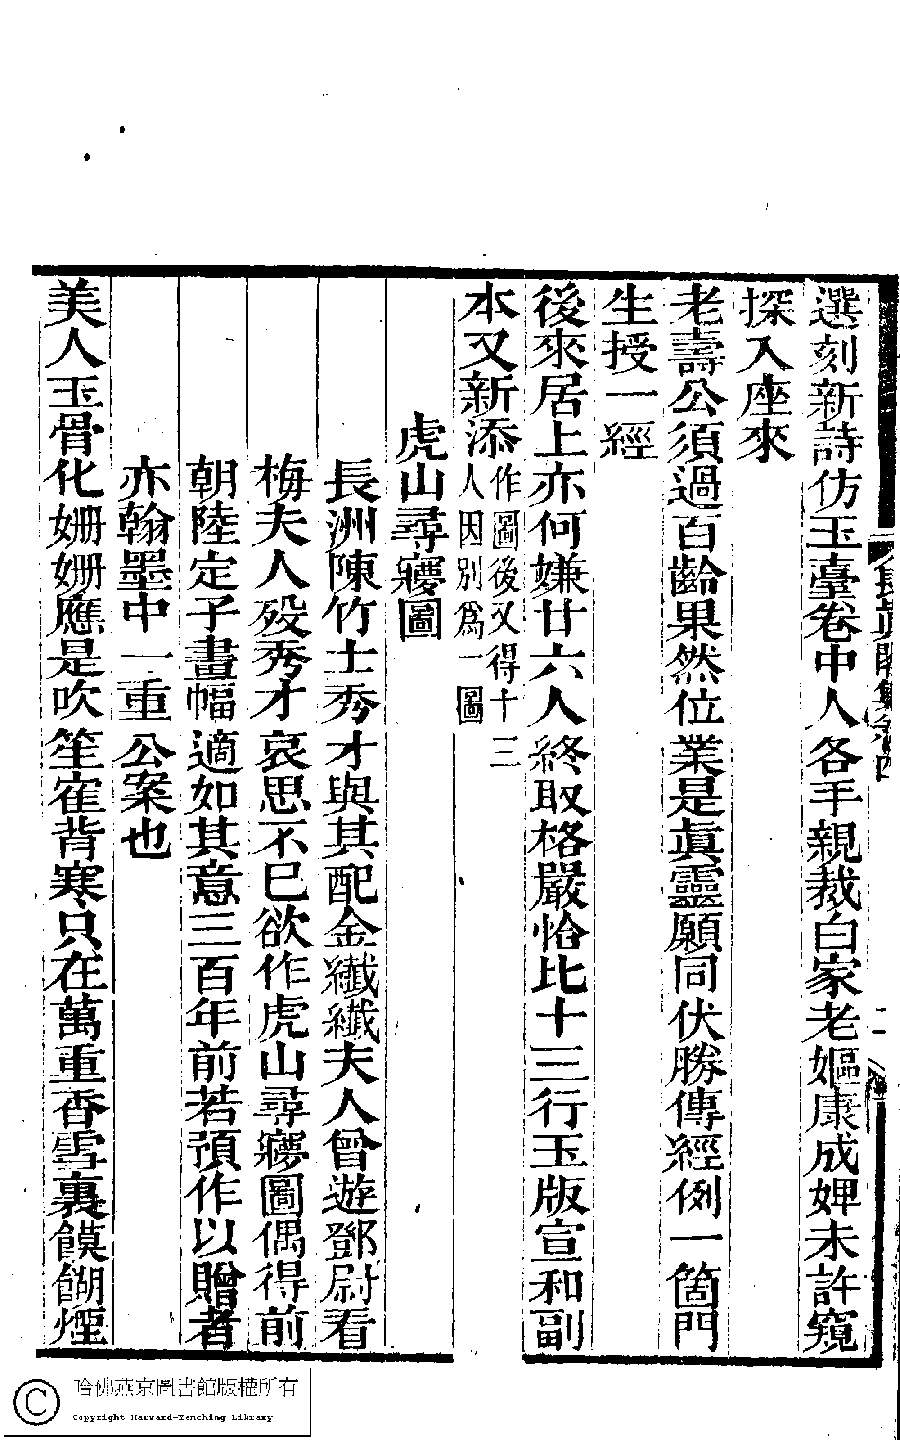 選刻新詩仿玉臺卷中人各手親裁白家老嫗康成婢未許窺
探入座來
老壽公須過百齡果然位業是眞靈願同伏勝傳經例一箇門
生授一經
後來居上亦何嫌廿六人終取格嚴恰比十三行玉版宣和副
本又新添作圖後又得十三
人因別爲一圖
虎山尋㝱圖
長洲陳竹士秀才與其配金纖纖夫人曾遊鄧尉看
梅夫人歿秀才哀思不已欲作虎山尋㝱圖偶得前
朝陸定子畫幅適如其意三百年前若預作以贈者
亦翰墨中一重公案也
美人玉骨化姍姍應是吹笙寉背寒只在萬重香雪裏饃餬煙
長眞閣集卷四
哈佛燕京圖書館版權所有
Copyright Harvard-Yenching Library